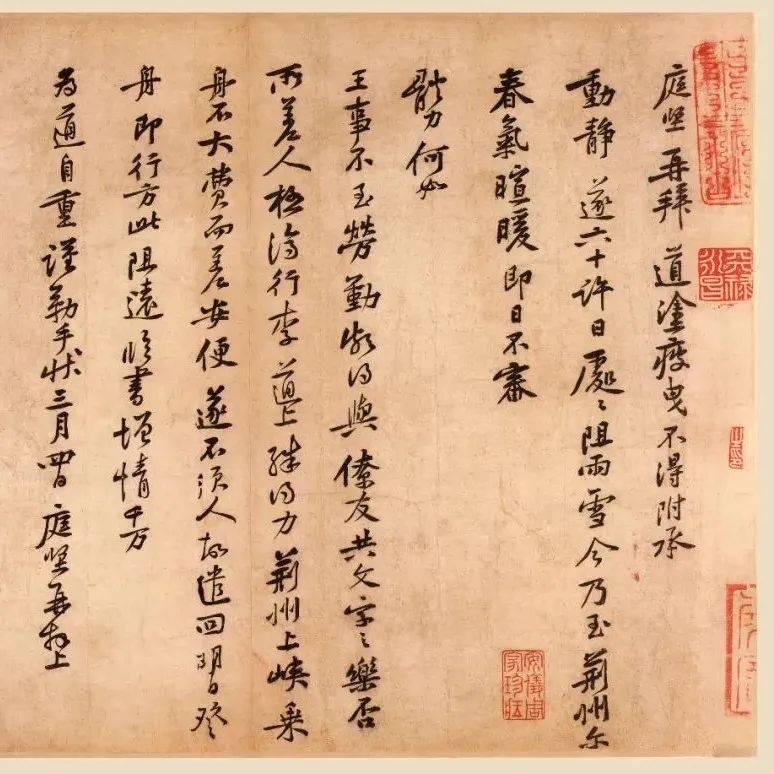 庭堅再拜道塗疲曳不得附承
動靜遂六十許日處〻阻雨雪今乃至荊州尔
春氣暄暖即日不審
體力何如
王事不至勞勤頗得與僚友共文字之樂否
所差人極濟行李道上殊得力荊州上峽乘
舟不大費而差安便遂不須人故遣回明日登
舟即行方此阻遠臨書增情千万
為道自重謹勒手狀三月四日庭堅再拜上
安儀周家珍藏